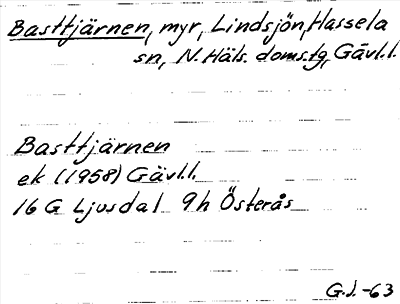 Basttjärnen, myr, Lindsjön, Hassela
sn, N. Häls. doms.tg, Gävl.l.
Basttjärnen
ek (1958) Gävl.l.
16 G Ljusdal 9h Österås
G.J. -63